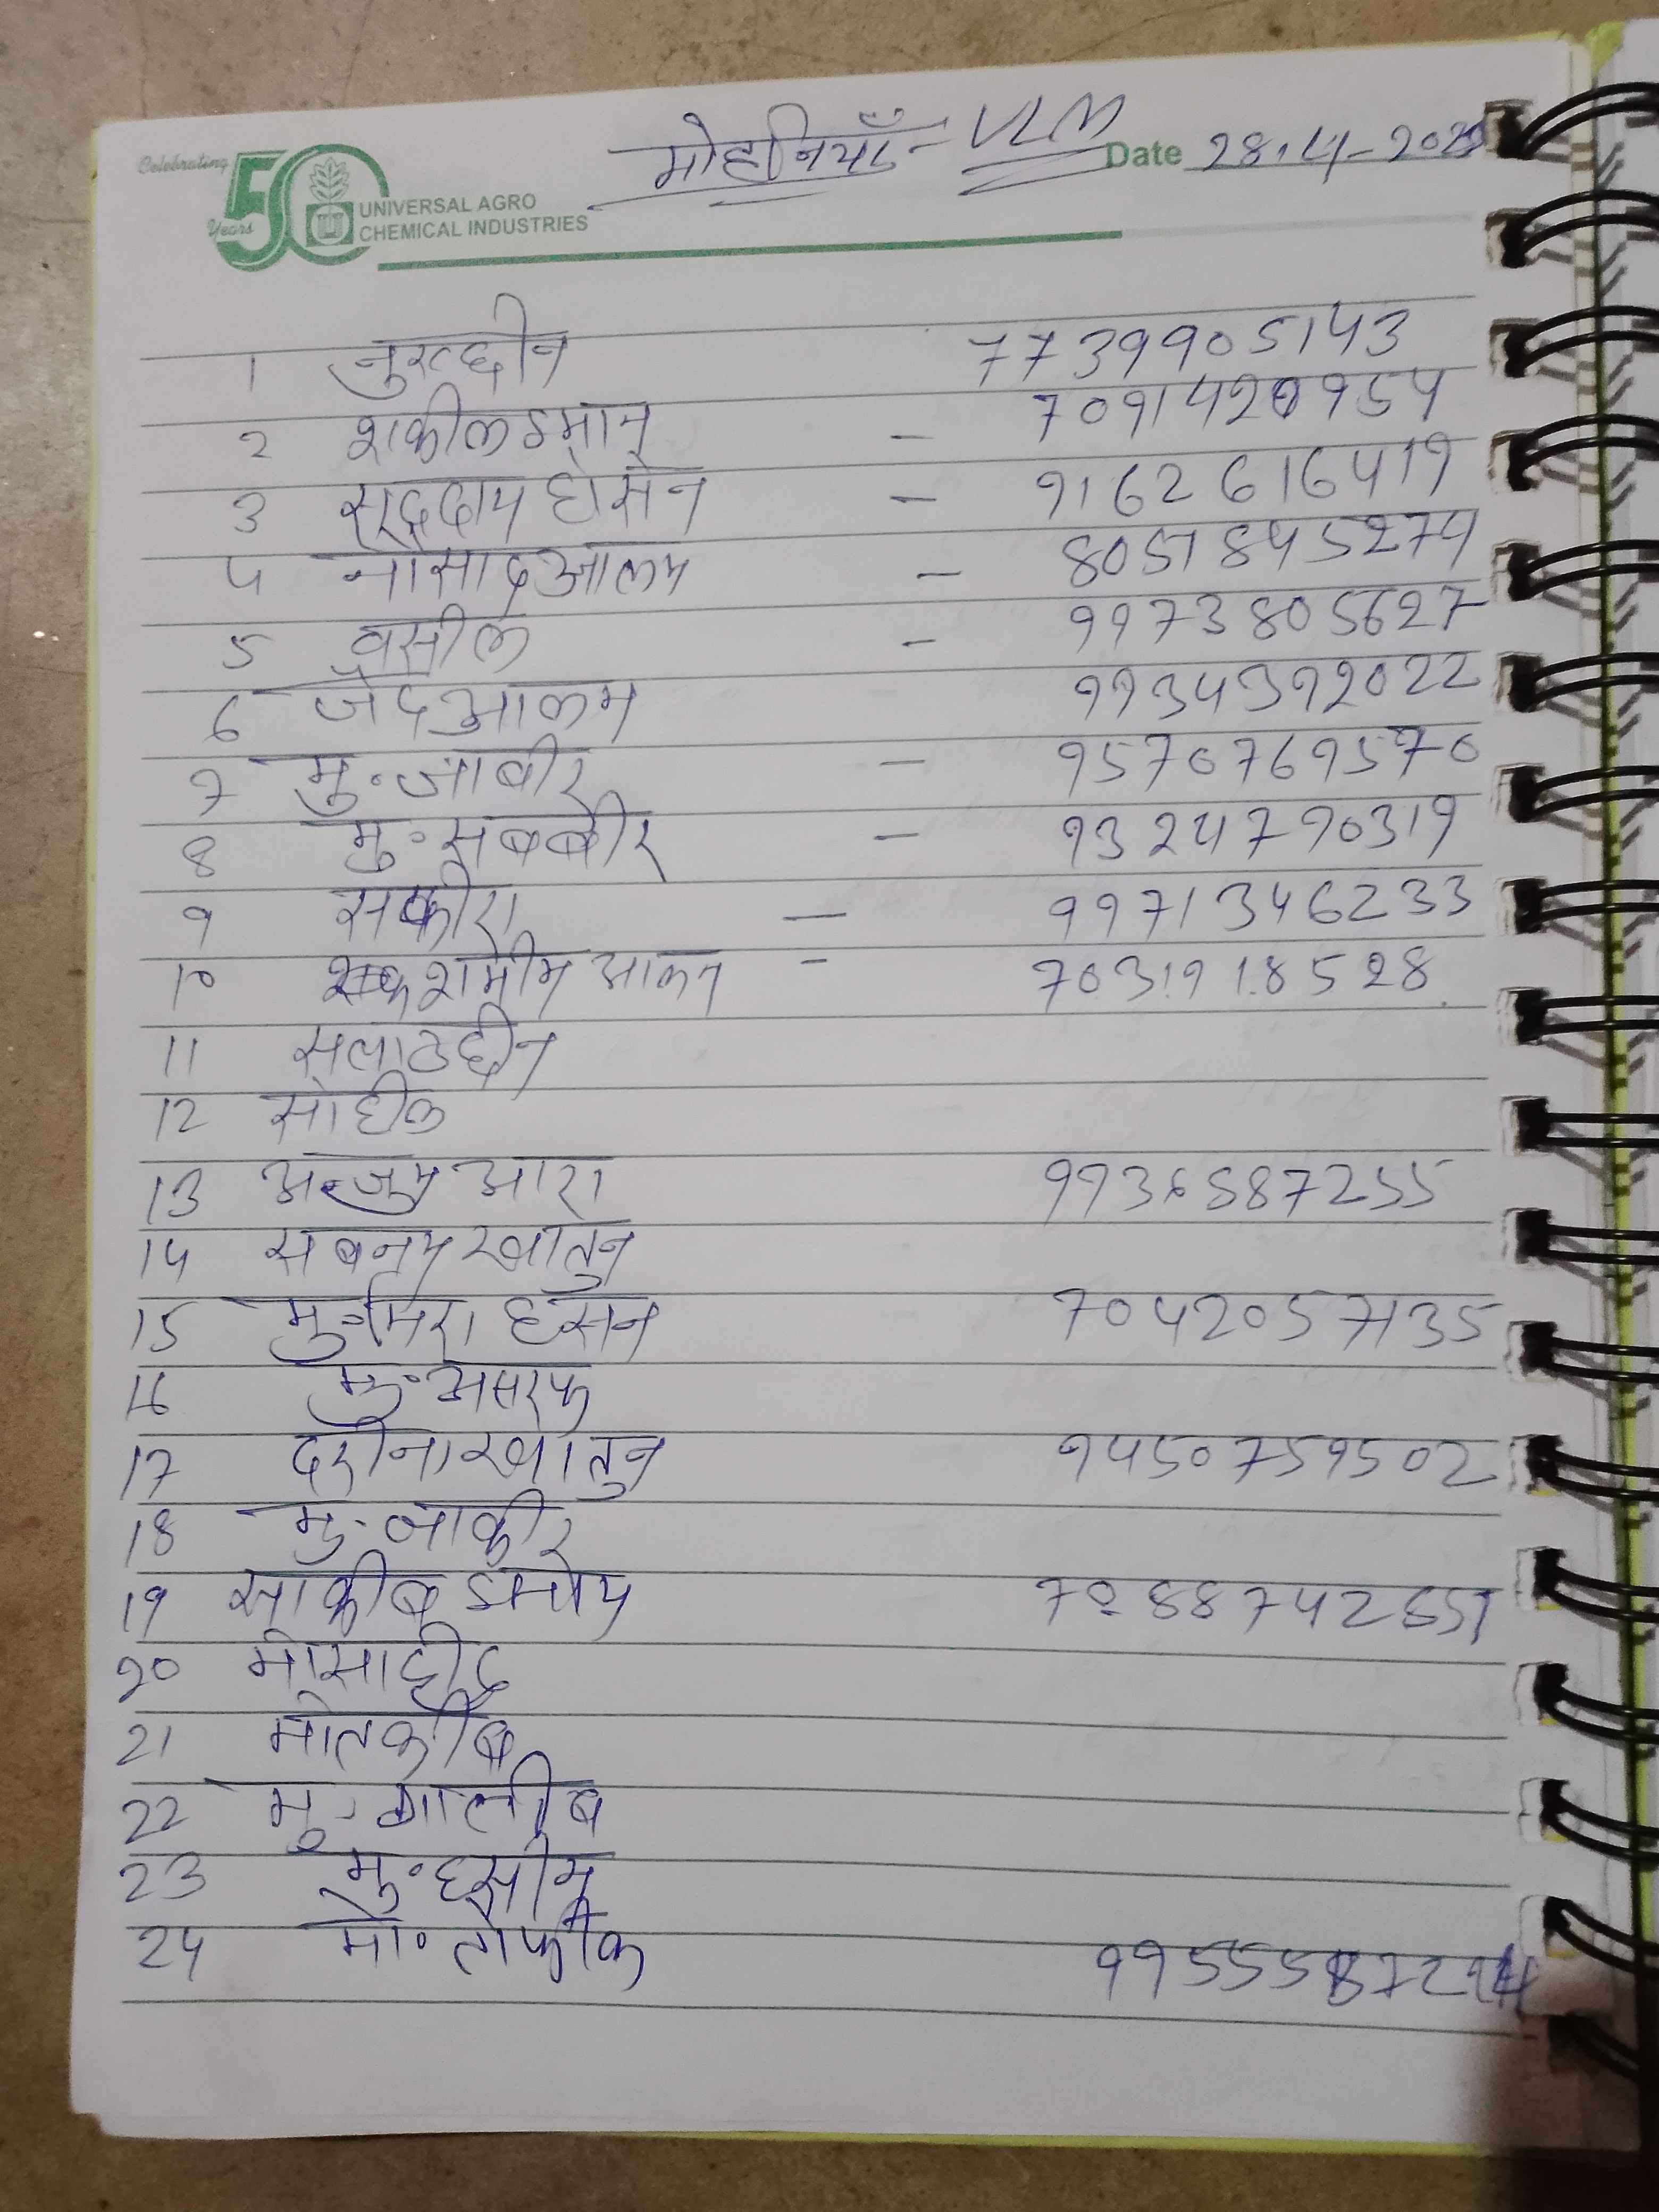 मोहनियाँ - VLM
Celebrating 50 Years
UNIVERSAL AGRO
CHEMICAL INDUSTRIES
Date 28.4-202
1 नुरुद्दीन 7739905143
2 शकील इमाम - 7091420954
3 सद्दाम होसेन - 9162616419
4 नौसाद आलम - 8051845274
5 वसील - 9973805627
6 जैद आलम 9934392022
7 मु॰ जाबीर - 9570769570
8 मु॰ सबबीर - 9324790319
9 सकीरा - 9971346233
10 शमीम आलम - 7031918528
11 सलाउद्दीन
12 सोहील
13 अन्जुम आरा 9936587255
14 सबनम खातुन
15 मु॰ मिरा हसन 7042057135
16 मु॰ असरफ
17 दरीना खातुन 9450759502
18 मु॰ जाकीर
19 साकीब 7088742651
20 मोसाहीद
21 मोतकीब
22 मु॰ गालीब
23 मु॰ हसीम
24 मो॰ तोफीक